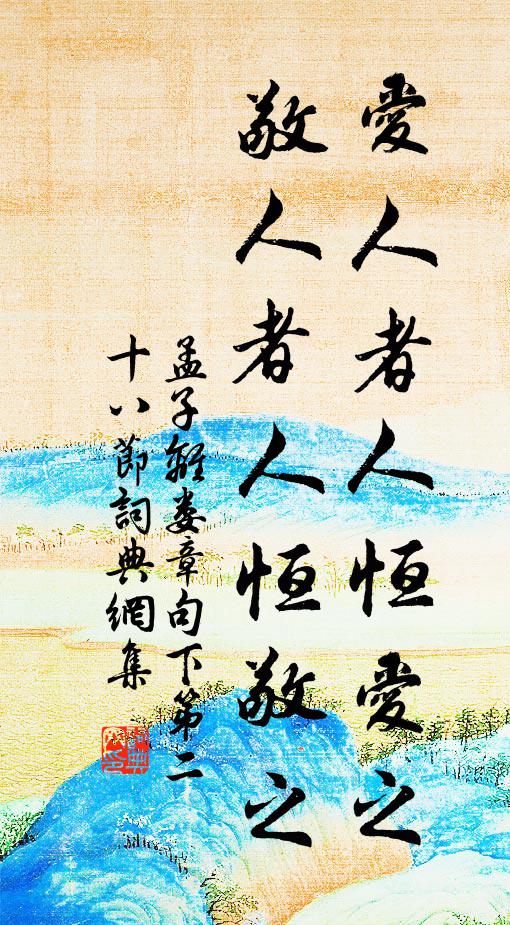 愛人者人恒愛之
敬人者人恒敬之
孟子離婁章句下第二
十八節詞典網集